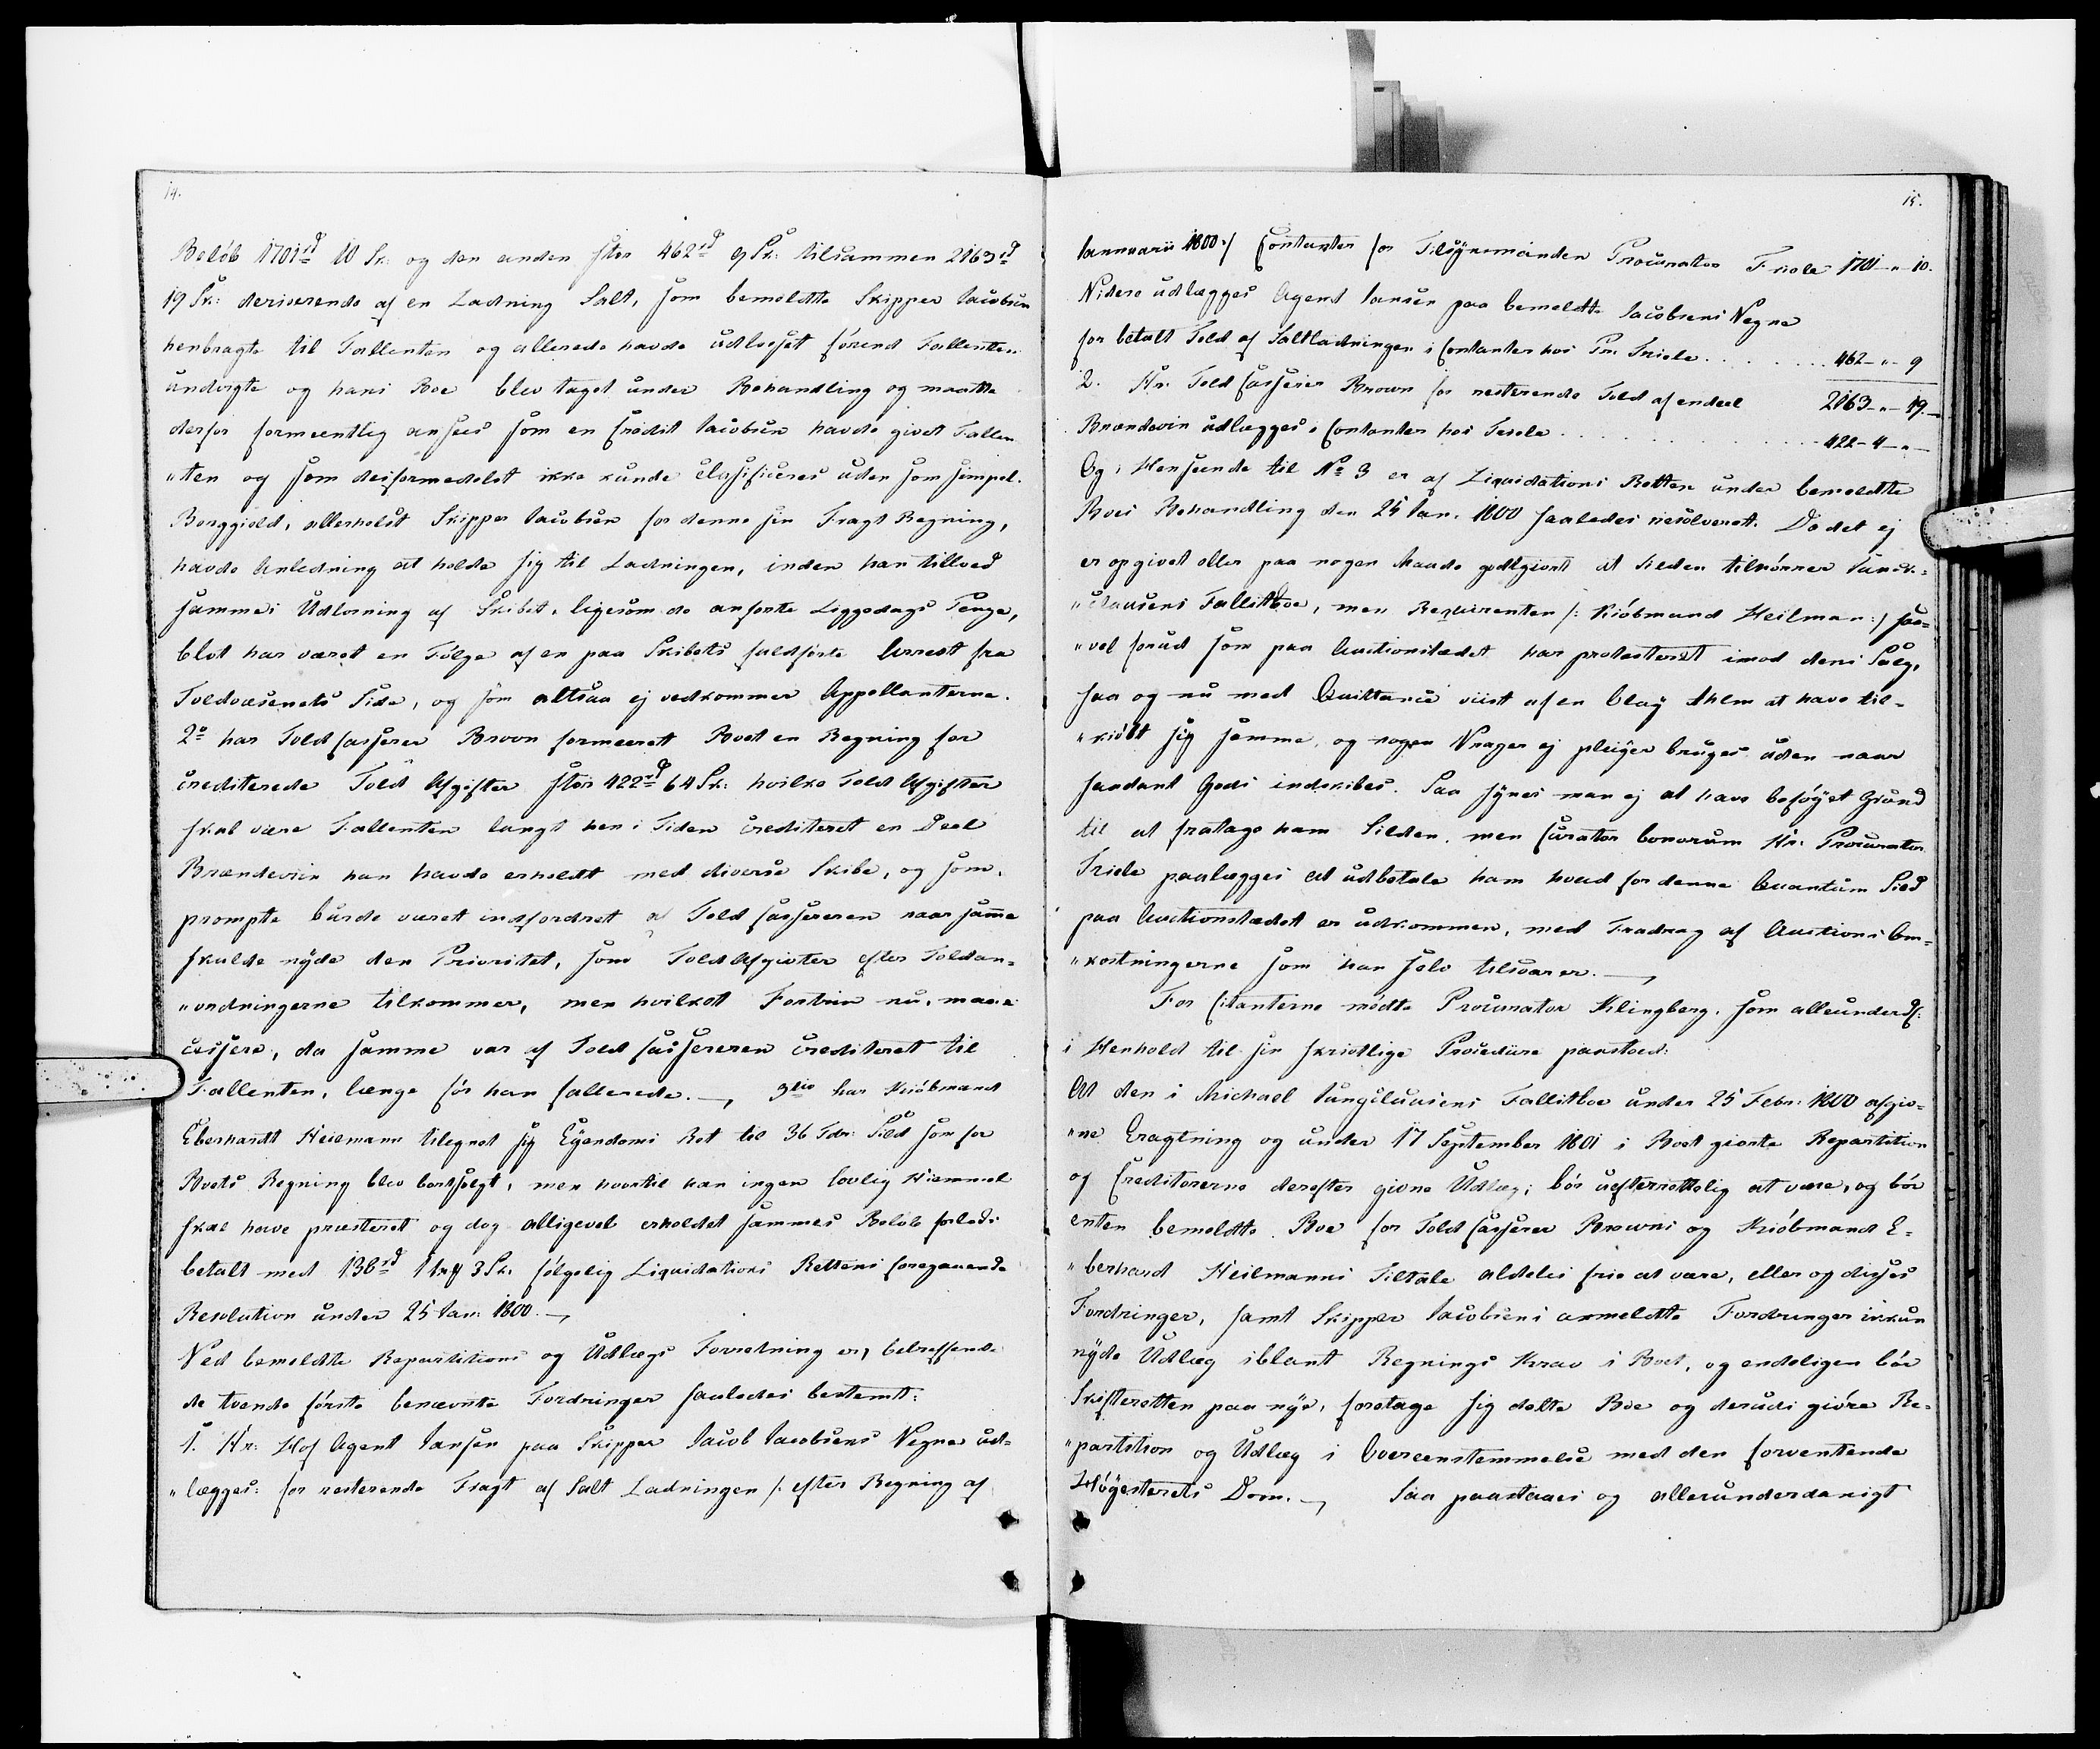 14.
Beløb 1701rd 10 Sk: og den anden stor 462rd 9 Sk: tilsammen 2163rd
19 Sk: deriverende af en Ladning Salt, som bemeldte Skipper Iacobsen
henbragte til Fallenten og allerede havde udlosset førend Fallenten
undvigte og hans Boe blev taget under Behandling og maatte
derfor formeentlig ansees som en Credit Iacobsen havde givet Fallen
„ten og som desformedelst ikke kunde classificeres uden som simpel
Borggield, allerhelst Skipper Iacobsen for denne sin Fragt Regning,
havde Anledning at holde sig til Ladningen, inden han tillod
sammes Udlosning af Skibet, ligesom de anførte Liggedags Penge,
blot har været en Følge af en paa Skibets fuldførte Arrest fra
Toldvæsenets Side, og som altsaa ej vedkommer Appellanterne.
2o har Told Casserer Brown formeeret Boet en Regning for
crediterede Told Afgifter stor 422rd 64 Sk: hvilke Told Afgifter
skal være Fallenten langt hen i Tiden crediteret en Deel
Brændeviin han havde erholdt med diverse Skibe, og som
prompte burde været indfordret af Told Casereren naar samme
skulde nyde den Prioritet, som Told Afgivter efter Toldan-
„ordningerne tilkommer, men hvilket Fortrin nu maae
cessere, da samme var af Told Cassereren crediteret til
Fallenten, længe før han fallerede. —, 3tio har Kiøbmand
Eberhardt Heilmann tilegnet sig Eyendoms Ret til 36 Tdr: Sild som for
Boets Regning blev bortsolgt, men hvortil han ingen lovlig Hiemmel
skal have præsteret og dog alligevel erholdet sammes Beløb
betalt med 138rd 1 3 Sk: følgelig Liquidations Rettens foregaaende
Resolution under 25 Ian: 1800. —,
Ved bemeldte Repartitions og Udlægs Forretning er, betreffende
de tvende første benævnte Fordringer saaledes bestemt:
1. Hr: Hof Agent Iansen paa Skipper Iacob Iacobsens Vegne ud-
„lægges: for resterende Fragt af Salt Ladningen /: efter Regning af
15.
Iannuarii 1800 :/ Contanter for Tilsynsmanden Procurator Friele 1701 - „ - 10.
Videre udlægges Agent Iansen paa bemeldte Iacobsens Vegne
for betalt Told af Saltladningen i Contanter hos Pr: Friele . . . . . . 462 - „ - 9
2. Hr: Told Casserer Brown for resterende Told af endeel 2163 - „ - 19.
Brændeviin udlægges i Contanter hos . . . . . . 422 - 4 - „ -
Og i Henseende til No 3 er af Liquidations Retten under bemeldte
Boes Behandling den 25 Ian. 1800 saaledes resolveret. Da det ej
er opgivet eller paa nogen Maade godtgiort at Silden tilhører
„Clausens Fallitboe, men Requirenten /: Kiøbmand Heilman :/ saa-
„vel forud som paa Auctionstædet har protesteret imod dens Salg,
saa og nu med Quittance viist af en Olaÿ Ahlm at have til-
„kiøbt sig samme, og nogen Vrager ej pleiÿer bruges uden naar
saadant Gods indskibes. Saa synes man ej at have beføyet Grund
til at fratage ham Silden, men Curator bonorum Hr: Procurator
Friele paalægges at udbetale ham hvad for denne Quantum Sild
paa Auctionstædet er udkommen, med Fradrag af Auctions Om-
„kostningerne som han selv tilsvarer. —,
For Citanterne mødte Procurator Klingberg, som allerunderd:
i Henhold til sin skrivtlige Procedure paastoed:
At den i Michael Iungclausens Fallitboe under 25 Febr: 1800 afgiv-
„ne Eragtning og under 17 September 1801 i Boet giorte Repartition
og Creditorerne derefter givne Udlæg, bør uefterrettelig at være, og bør
enten bemeldte Boe for Told Casserer Browns og Kiøbmand E-
„berhard Heilmanns Tiltale aldeles frie at være, eller og disses
Fordringer, samt Skipper Iacobsens anmeldte Fordringer ikkun
nyde Udlæg iblant Regnings Krav i Boet, og endeligen bør
Skifteretten paa nye, foretage sig dette Boe og derudi giøre Re-
„partition og Udlæg i Overeenstemmelse med den forventende
Høyesterets Dom. —, Saa paastaaes og allerunderdanigt